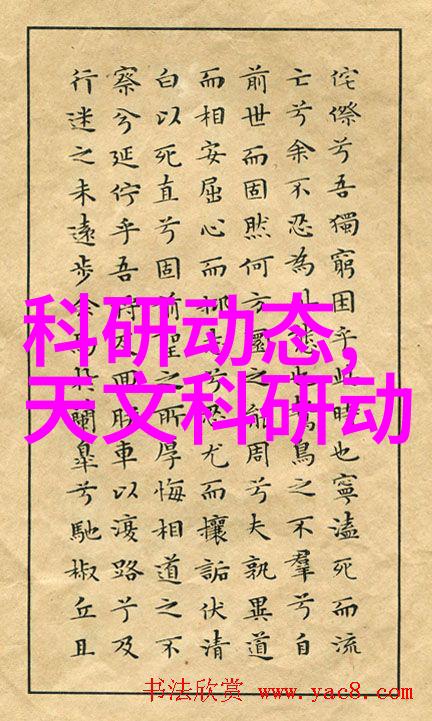 侘傺兮吾獨窮困乎此時也寧溘死而流
亡兮余不忍為此態也鷙鳥之不羣兮自
前世而固然何方圜之能周兮夫孰異道
而相安屈心而抑志兮忍尤而攘詬伏清
白以死直兮固前聖之所厚悔相道之不
察兮延佇乎吾將反回朕車以復路兮及
行迷之未遠步余馬於蘭皋兮馳椒丘且
科研动态,
天文科研动
书法欣赏 www.yac8.com